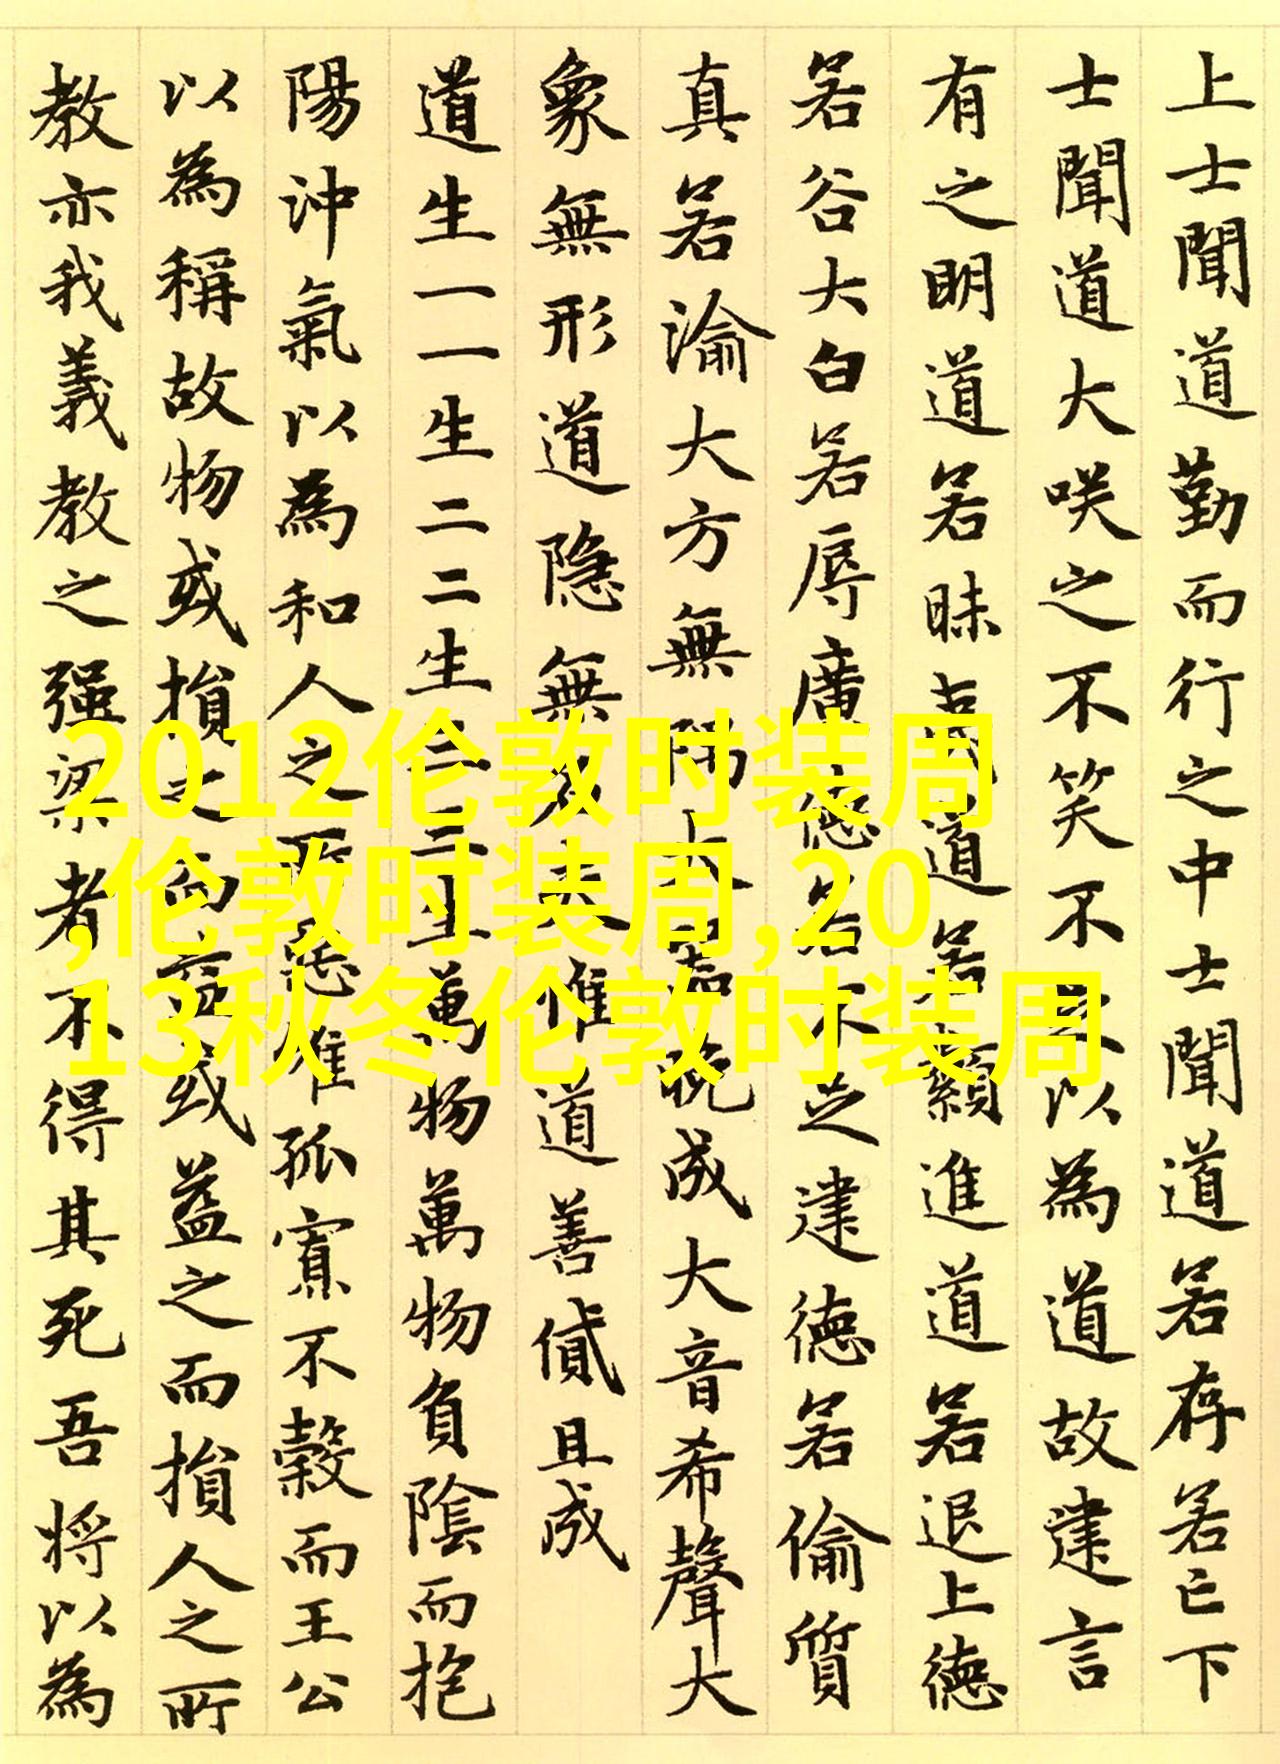 上士聞道勤而行之中士聞道若存若亡下
士聞道大咲之不笑不足以為道故建言
有之明道若昧道若纇進道若退上德
若谷大白若辱廣德若不足建德若偷質
真若渝大方無隅大器晚成大音希聲大
象無形道隐無名夫惟道善貸且成
道生一一生二二生三三生萬物萬物負陰而抱
陽沖氣以為和人之所惡惟孤寡不穀而王公
以為稱故物或損之而益或益之而損人之所
教亦我義教之强梁者不得其死吾将以為
2012伦敦时装周
,伦敦时装周,20
13秋冬伦敦时装周